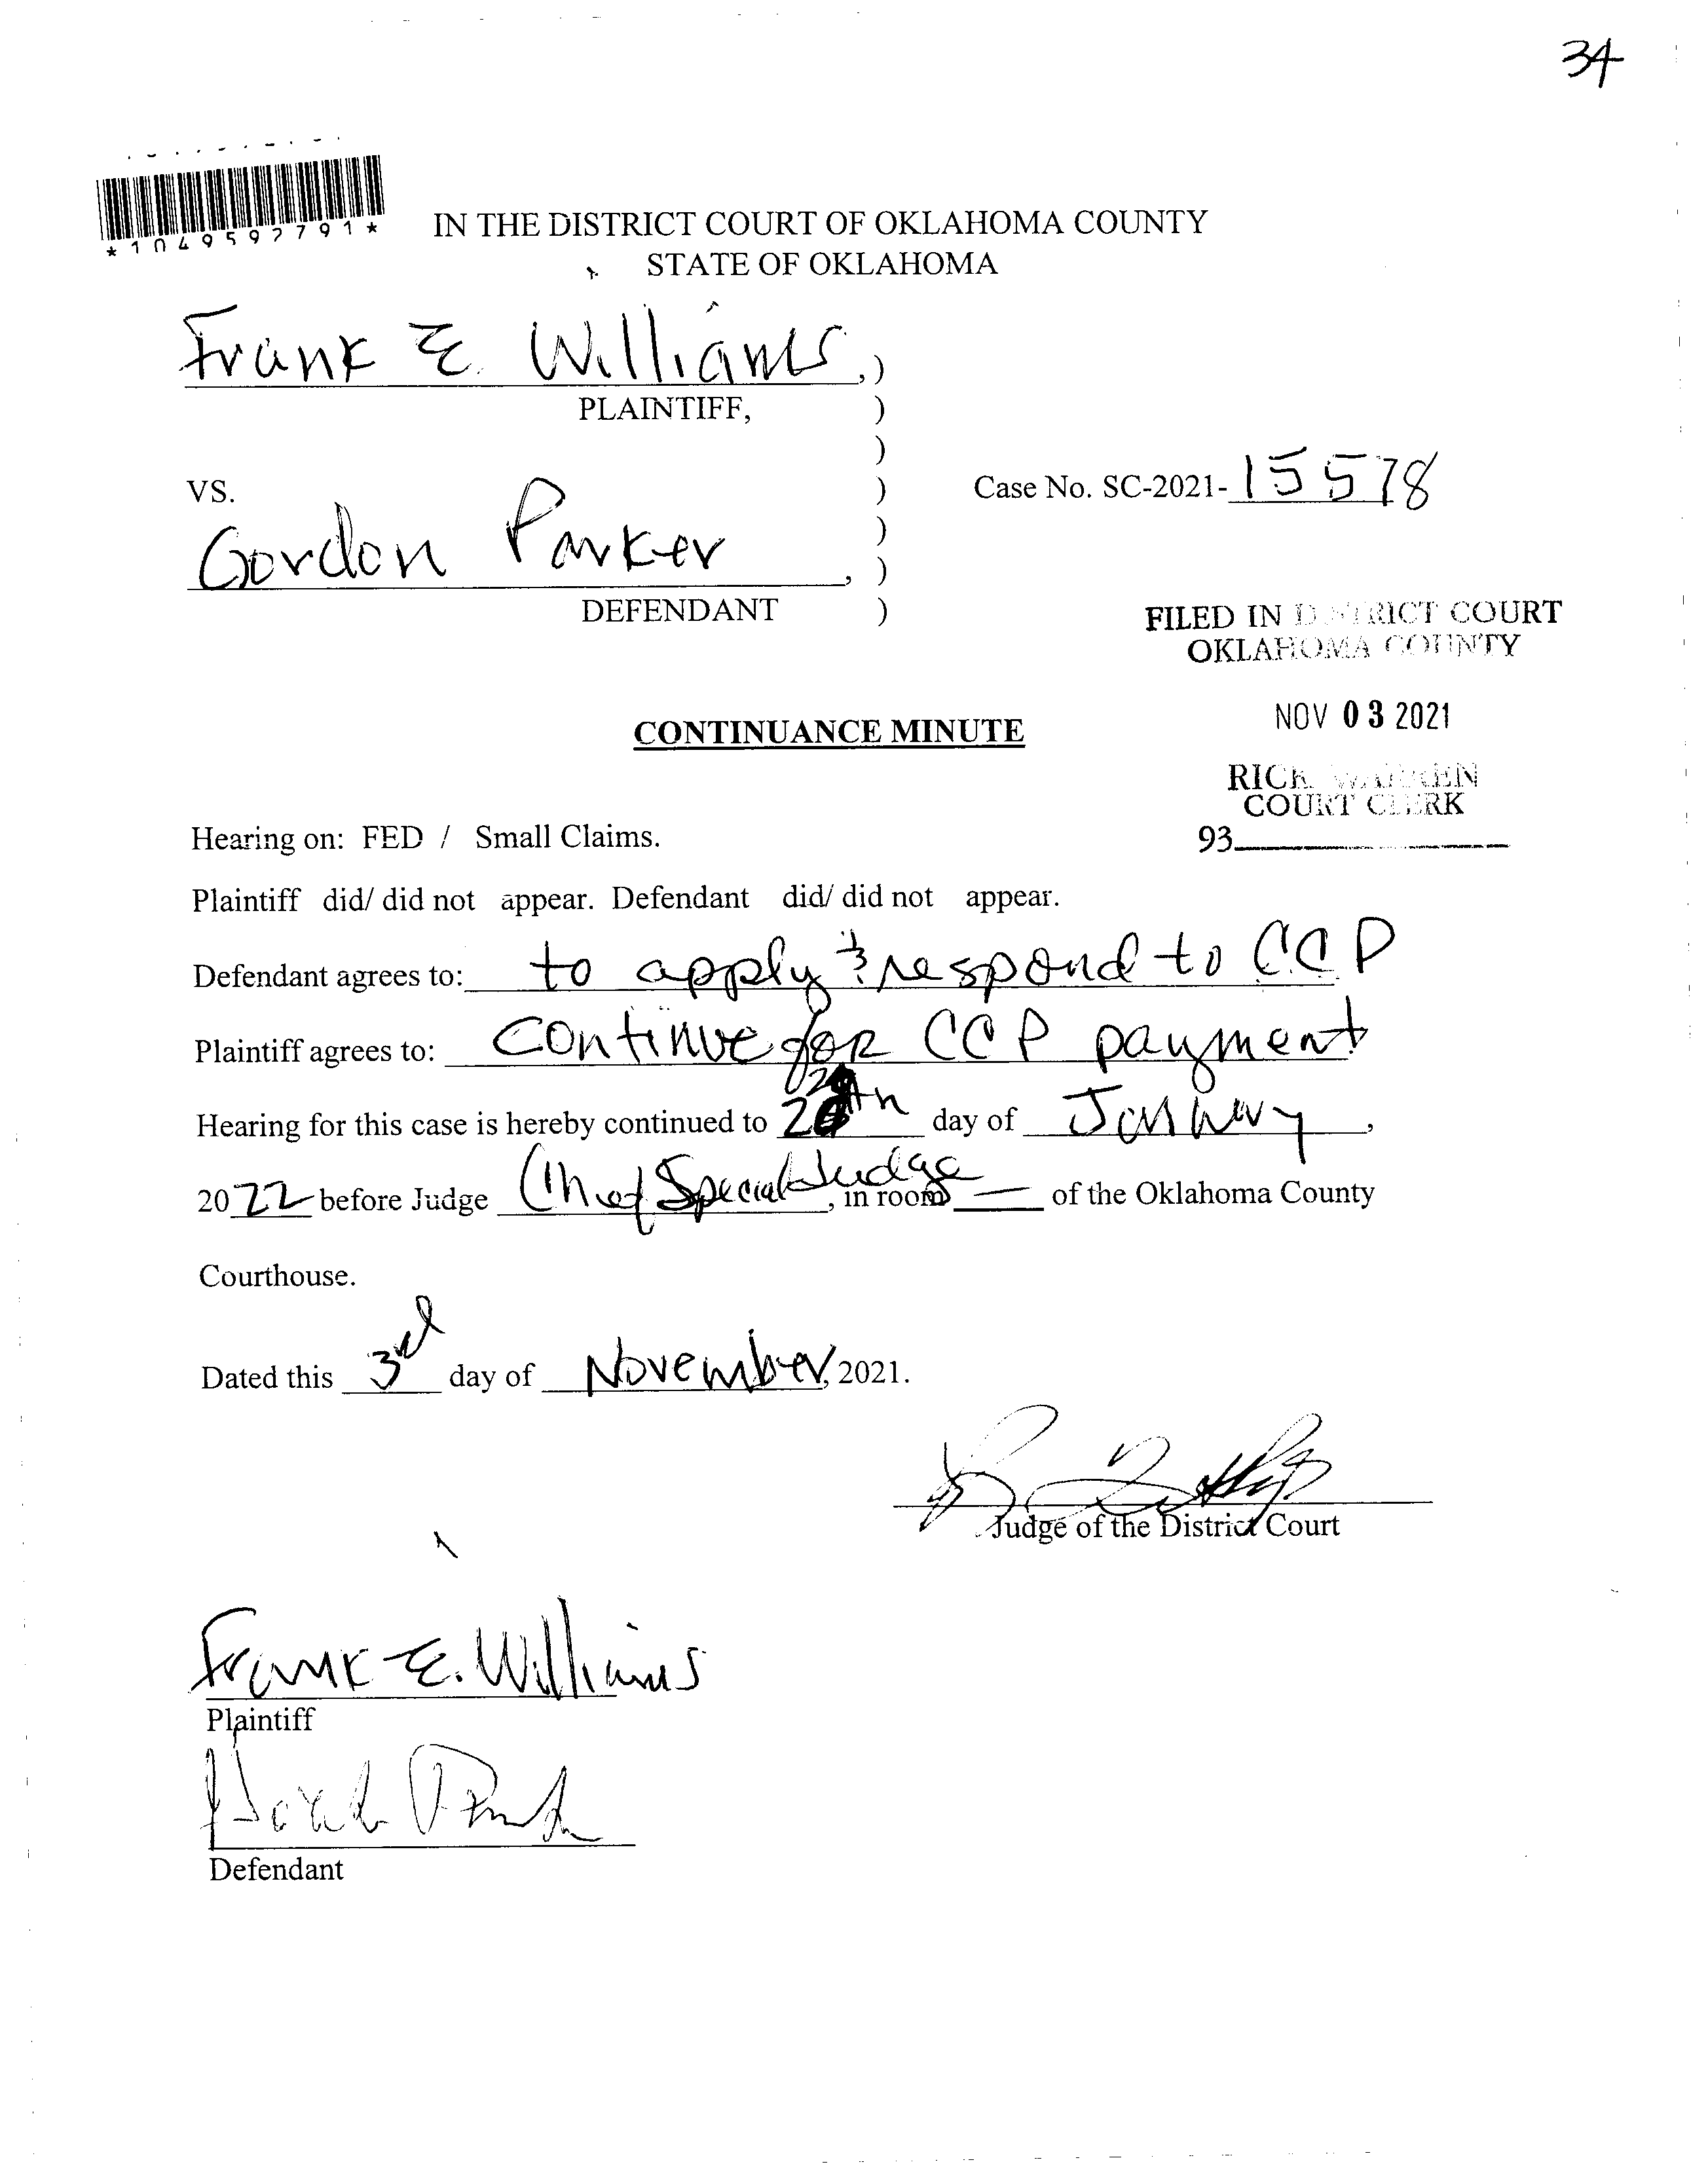 34
*1049592791*
IN THE DISTRICT COURT OF OKLAHOMA COUNTY
STATE OF OKLAHOMA
Frank E. Williams,)
PLAINTIFF, )
)
VS. ) Case No. SC-2021-15578
)
Gordon Parker, )
DEFENDANT )
FILED IN DISTRICT COURT
OKLAHOMA COUNTY
NOV 03 2021
CONTINUANCE MINUTE
RICK WARREN
COURT CLERK
93
Hearing on: FED / Small Claims.
Plaintiff did/ did not appear. Defendant did/ did not appear.
Defendant agrees to: to apply & respond to CCP
Plaintiff agrees to: continue for CCP payment
Hearing for this case is hereby continued to day of January,
2022 before Judge Chief Special Judge, in room — of the Oklahoma County
Courthouse.
Dated this 3rd day of November, 2021.
Judge of the District Court
Frank E. Williams
Plaintiff
Defendant